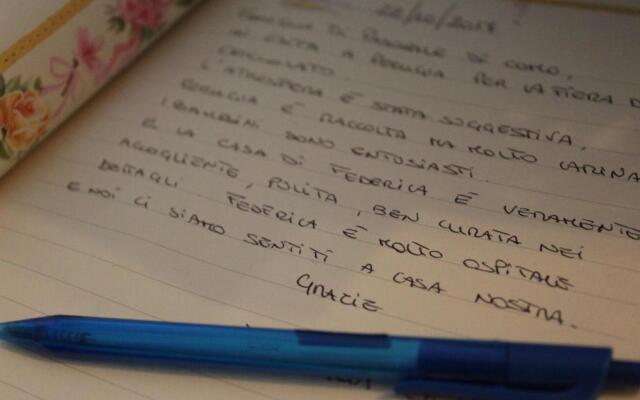 22/10/2017
FAMIGLIA DI PASQUALE DI COMO,
IN GITA A PERUGIA PER LA FIERA D
CIOCCOLATO.
L'ATMOSFERA È STATA SUGGESTIVA,
PERUGIA È RACCOLTA MA MOLTO CARINA
I BAMBINI SONO ENTUSIASTI.
E LA CASA DI FEDERICA È VERAMENTE
ACCOGLIENTE, PULITA, BEN CURATA NEI
DETTAGLI. FEDERICA È MOLTO OSPITALE
E NOI CI SIAMO SENTITI A CASA NOSTRA.
GRAZIE